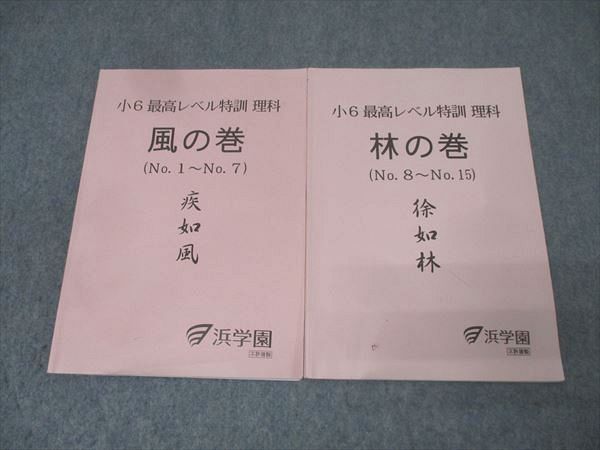 小6 最高レベル特訓 理科
風の巻
(No. 1～No. 7)
疾如風
浜学園
不許複製
小6 最高レベル特訓 理科
林の巻
(No. 8～No. 15)
徐如林
浜学園
不許複製